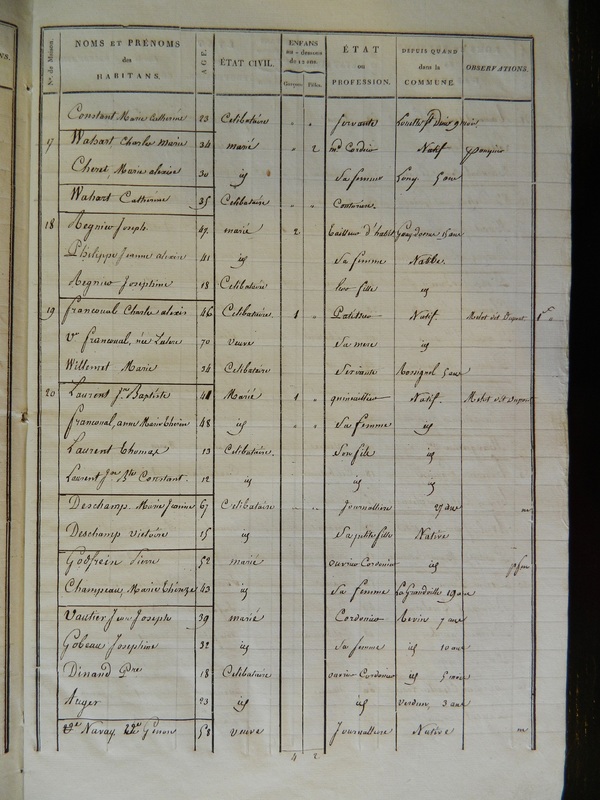 N.º de Maison. NOMS ET PRÉNOMS des HABITANS. AGE. ÉTAT CIVIL. ENFANS au-dessous de 12 ans. Garçons. Filles. ÉTAT ou PROFESSION. DEPUIS QUAND dans la COMMUNE. OBSERVATIONS.
Constant Marie Catherine 23 Celibataire " " servante
17 Wahart Charle marie 34 marié " 2 md Cordier Natif
Cheret, Marie alexise 30 id Sa femme Lony 5 ans
Wahart Catherine 35 Celibataire " " Couturiere.
18 Regnier Joseph. 47. marié 2 tailleur d'habit 15 ans
Philippe Jeanne alexise 41 id Sa femme Native.
Regnier Josephine 18 Celibataire leur fille id
19 francoual Charle alexis 46 Celibataire. 1 " Patissier Natif. Melot dit Dupont
Ve francoual, née 70 veuve Sa mere id
Willemet Marie 34 Celibataire Servante Rossignol 5 ans
20 Laurent Jn Baptiste 41 Marié 1 " quincaillier Natif. Melot dit Dupont
francoual, anne Marie 48 id " " Sa femme id
Laurent Thomas 13 Celibataire. Son fils id
Laurent Jn Bte Constant. 12 id id id
Deschamp Marie Jeanne 67 Celibataire Journalliere 27 ans
Deschamp Victoire 15 id Sa petite fille Native
Godfrein Pierre 52 marié ouvrier Cordonnier id
Champeau, Marie Thereze 43 id Sa femme La Grandville 19 ans
Vautier Jean Joseph 39 marié Cordonnier Revin 7 ans
Gobeau Josephine 32 id Sa femme id 10 ans
Dinand Pre 18 Celibataire ouvrier Cordonnier id 5 mois
Auger 23 id id Verdun, 3 ans
Ve Navay 58 veuve Journalliere Native
4 2